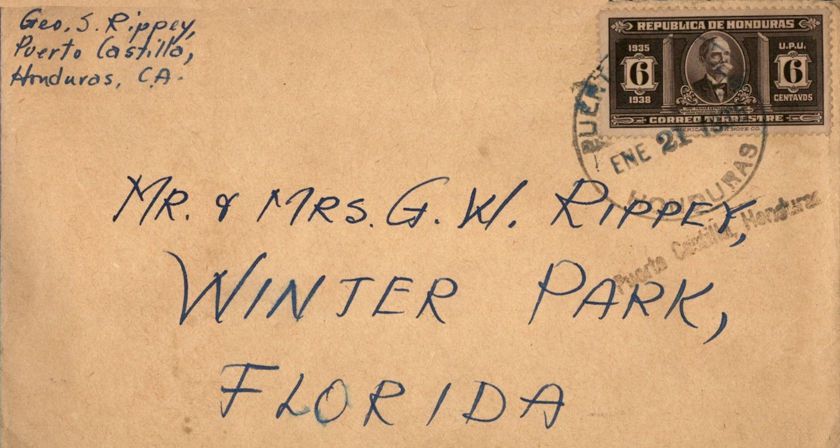 Geo. S. Rippey,
Puerto Castilla,
Honduras, C.A.
REPUBLICA DE HONDURAS
1935 U.P.U.
6 6
1938 CENTAVOS
CORREO TERRESTRE
ENE 21
HONDURAS
Puerto Castilla, Honduras
MR. & MRS. G. W. RIPPEY,
WINTER PARK,
FLORIDA